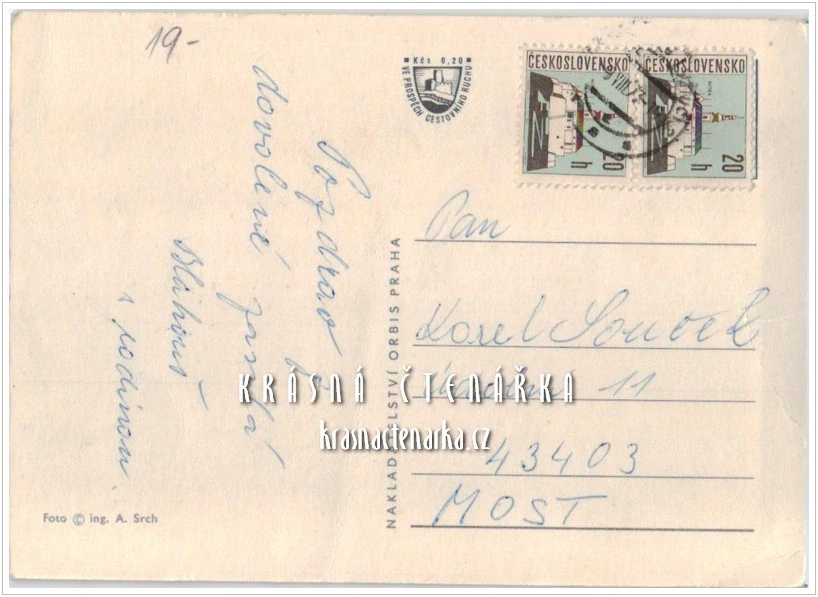 19-
Pozdrav z
dovolené zasílá
Blahouš
s rodinou.
Kčs 0,20
VE PROSPĚCH CESTOVNÍHO RUCHU
ČESKOSLOVENSKO
20 h
ČESKOSLOVENSKO
NITRA
20 h
NAKLADATELSTVÍ ORBIS PRAHA
Pan
Karel Souček
11
43403
MOST
KRÁSNÁ ČTENÁŘKA
krasnactenarka.cz
Foto © ing. A. Srch